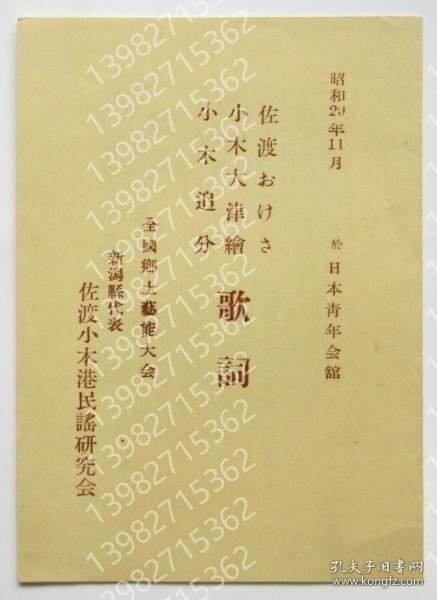 昭和29年11月
於 日本青年会館
佐渡おけさ
小木大津繪
小木追分
歌詞
全國郷土藝能大会
新潟縣代表
佐渡小木港民謠研究会
13982715362
13982715362
13982715362
13982715362
13982715362
13982715362
13982715362
13982715362
孔夫子旧书网
www.kongfz.com